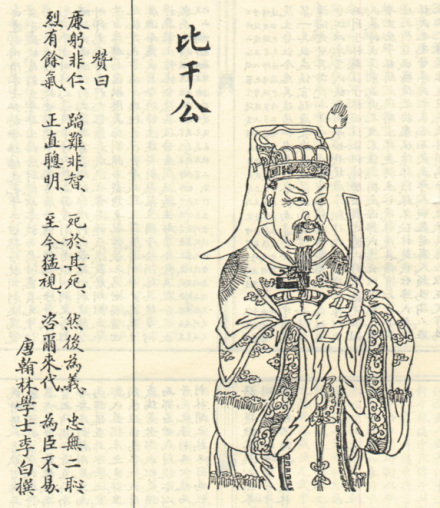 比干公
贊曰
康躬非仁、蹈難非智、死於其死、然後為義、忠無二恥、
烈有餘氣、正直聰明、至今猛視、咨爾來代、為臣不易、
唐翰林學士李白撰